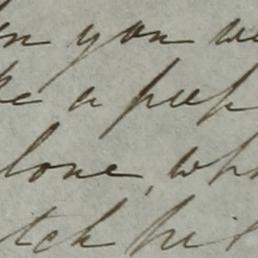 n you we
ke a peep
lone, wh
tch his